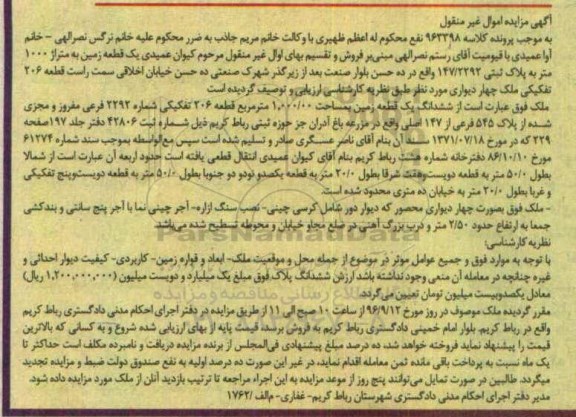 آگهی مزایده اموال غیر منقول
به موجب پرونده کلاسه ۹۶۳۳۹۸ نفع محکوم له اعظم ظهیری با وکالت خانم مریم جاذب به ضرر محکوم علیه خانم نرگس نصرالهی – خانم
آوا عمیدی با قیومیت آقای رستم نصرالهی مبنی‌بر فروش و تقسیم بهای اوال غیر منقول مرحوم کیوان عمیدی یک قطعه زمین به متراژ ۱۰۰۰
متر به پلاک ثبتی ۱۴۷/۲۲۹۲ واقع در ده حسن بلوار صنعت بعد از زیرگذر شهرک صنعتی ده حسن خیابان اخلاقی سمت راست قطعه ۲۰۶
تفکیکی ملک چهار دیواری مورد نظر طبق نظریه کارشناسی ارزیابی و توصیف گردیده است
ملک فوق عبارت است از ششدانگ یک قطعه زمین بمساحت ۱,۰۰۰/۰۰ مترمربع قطعه ۲۰۶ تفکیکی شماره ۲۲۹۲ فرعی مفروز و مجزی
شده از پلاک ۵۴۵ فرعی از ۱۴۷ اصلی واقع در مزرعه باغ آدران جز حوزه ثبتی رباط کریم ذیل شماره ثبت ۴۲۸۰۶ دفتر جلد ۱۹۷صفحه
۲۲۹ که در مورخ ۱۳۷۱/۰۷/۱۸ سند آن بنام آقای ناصر عسگری صادر و تسلیم شده است سپس مع‌الواسطه بموجب سند شماره ۶۱۲۷۴
مورخ ۸۶/۱۰/۱۰ دفترخانه شماره هشت رباط کریم بنام آقای کیوان عمیدی انتقال قطعی یافته است حدود اربعه آن عبارت است از شمالا
بطول ۵۰/۰ متر به قطعه دویست‌وهفت شرقا بطول ۲۰/۰ متر به قطعه یکصدو نودو دو جنوبا بطول ۵۰/۰ متر به قطعه دویست‌وپنج تفکیکی
و غربا بطول ۲۰/۰ متر به خیابان ده متری محدود شده است.
- ملک فوق بصورت چهار دیواری محصور که دیوار دور شامل کرسی چینی- نصب سنگ ازاره- آجر چینی نما با آجر پنج سانتی و بندکشی
جمعا به ارتفاع حدود ۲/۵۰ متر و درب بزرگ آهنی در ضلع مجاو خیابان و محوطه تسطیح شده می‌باشد
نظریه کارشناسی:
با توجه به موارد فوق و جمیع عوامل موثر در موضوع از جمله محل و موقعیت ملک- ابعاد و قواره زمین- کاربردی- کیفیت دیوار احداثی و
غیره چنانچه در معامله آن منعی وجود نداشته باشد ارزش ششدانگ پلاک فوق مبلغ یک میلیارد و دویست میلیون (۱,۲۰۰,۰۰۰,۰۰۰ ریال)
معادل یکصدوبیست میلیون تومان تعیین می‌گردد.
مقرر گردیده ملک موصوف در روز مورخ ۹۶/۹/۱۲ از ساعت ۱۰ صبح الی ۱۱ از طریق مزایده در دفتر اجرای احکام مدنی دادگستری رباط کریم
واقع در رباط کریم. بلوار امام خمینی دادگستری رباط کریم به فروش برسد، قیمت پایه از بهای ارزیابی شده شروع و به کسانی که بالاترین
قیمت را پیشنهاد نماید فروخته خواهد شد، ده درصد مبلغ پیشنهادی فی‌المجلس از برنده مزایده دریافت و نامبرده مکلف است حداکثر تا
یک ماه نسبت به پرداخت باقی مانده ثمن معامله اقدام نماید، در غیر این صورت ده درصد اولیه به نفع صندوق دولت ضبط و مزایده تجدید
میگردد. طالبین در صورت تمایل می‌توانند پنج روز از موعد مزایده به این اجراء مراجعه تا ترتیب بازدید آنان از ملک مورد مزایده داده شود.
مدیر دفتر اجرای احکام مدنی دادگستری شهرستان رباط کریم- غفاری- م‌الف /۱۷۶۲
ParsNamadData